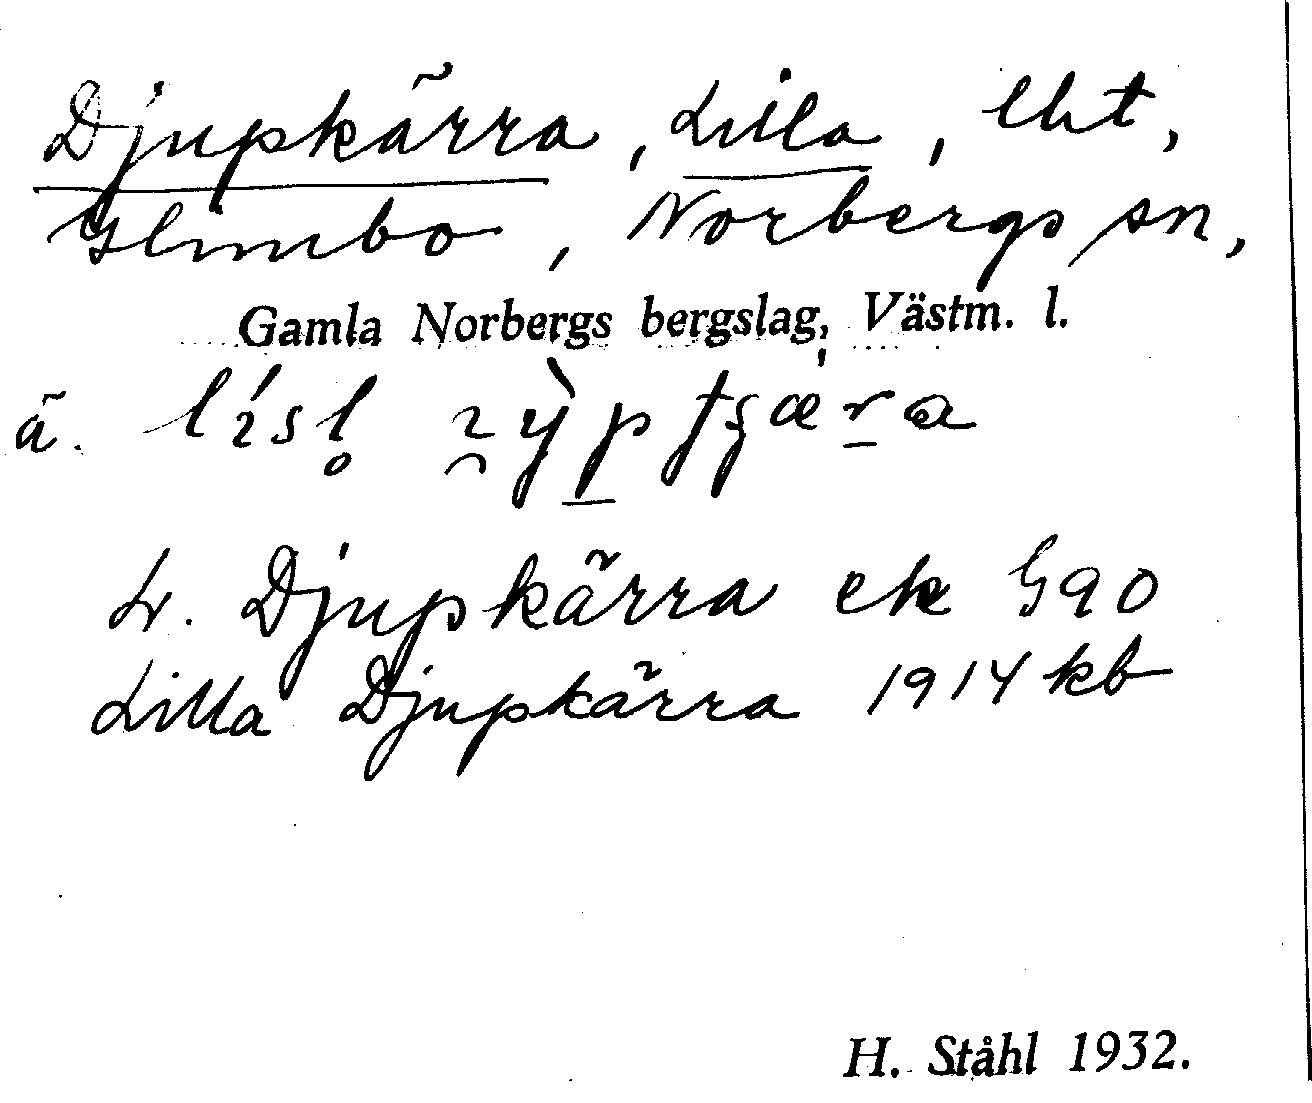 Djupkärra, Lilla, lht,
Glimbo, Norbergs sn,
Gamla Norbergs bergslag, Västm. l.
ä.
L. Djupkärra ek G90
Lilla Djupkärra 1914 kb
H. Ståhl 1932.